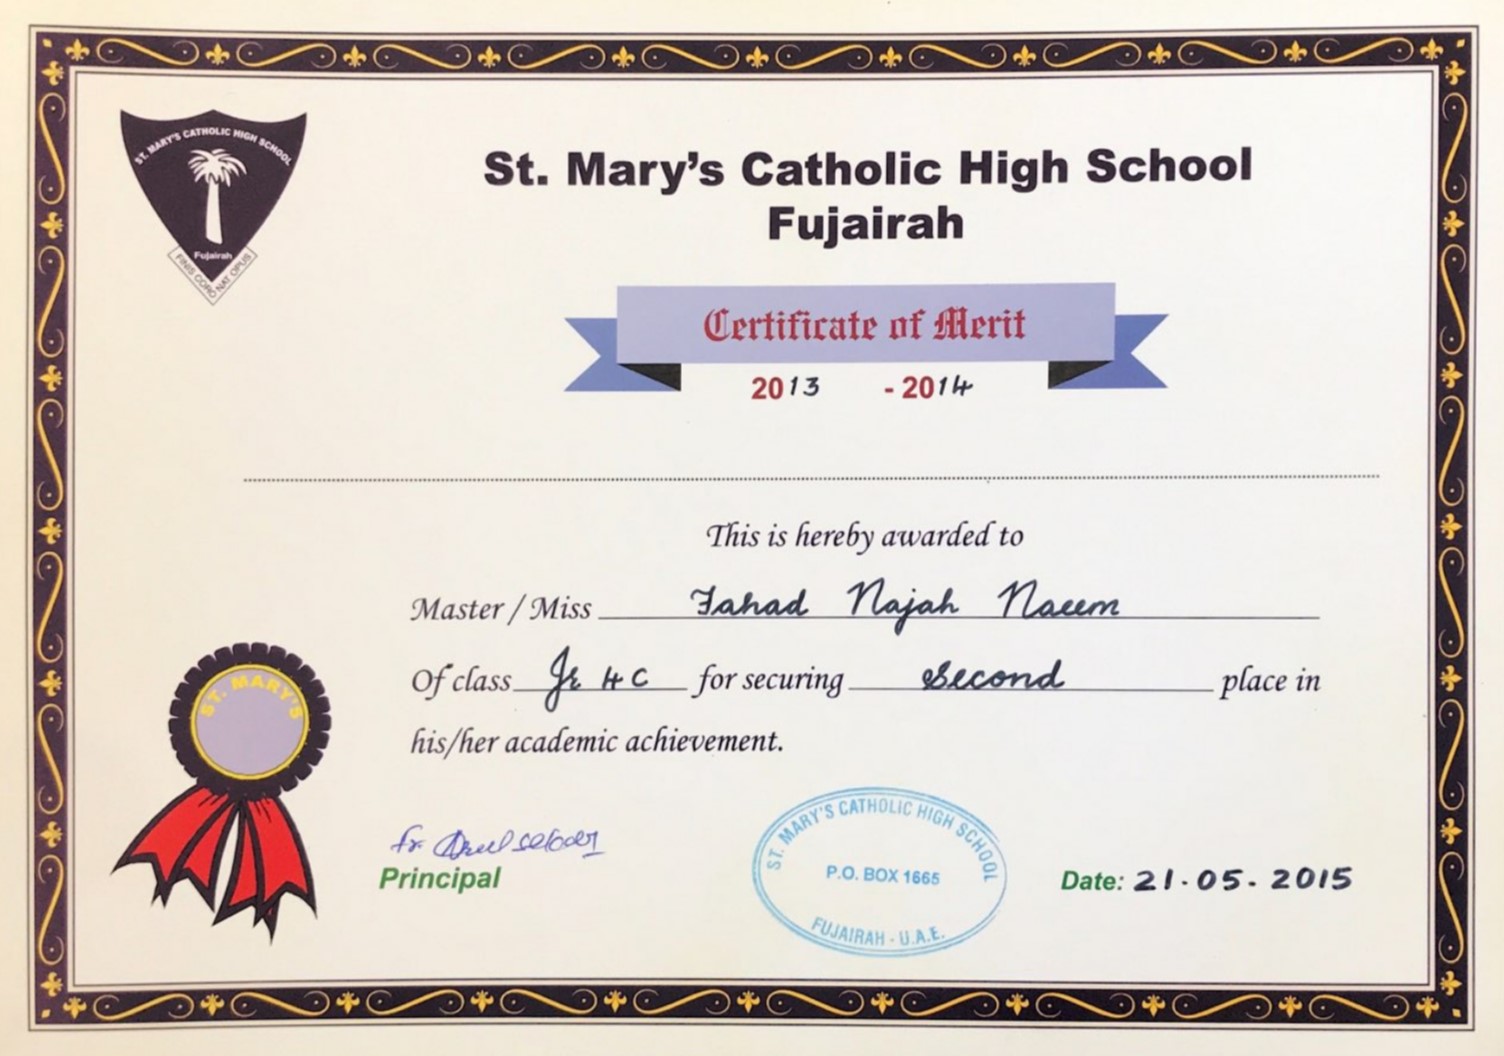 ST. MARY'S CATHOLIC HIGH SCHOOL
Fujairah
FINIS CORO NAT OPUS
St. Mary's Catholic High School
Fujairah
Certificate of Merit
2013 - 2014
This is hereby awarded to
Master / Miss Fahad Najah Naeem
Of class Jr 4 C for securing Second place in
his/her academic achievement.
ST. MARY'S
Fr.
Principal
ST. MARY'S CATHOLIC HIGH SCHOOL
P.O. BOX 1665
FUJAIRAH - U.A.E.
Date: 21.05.2015